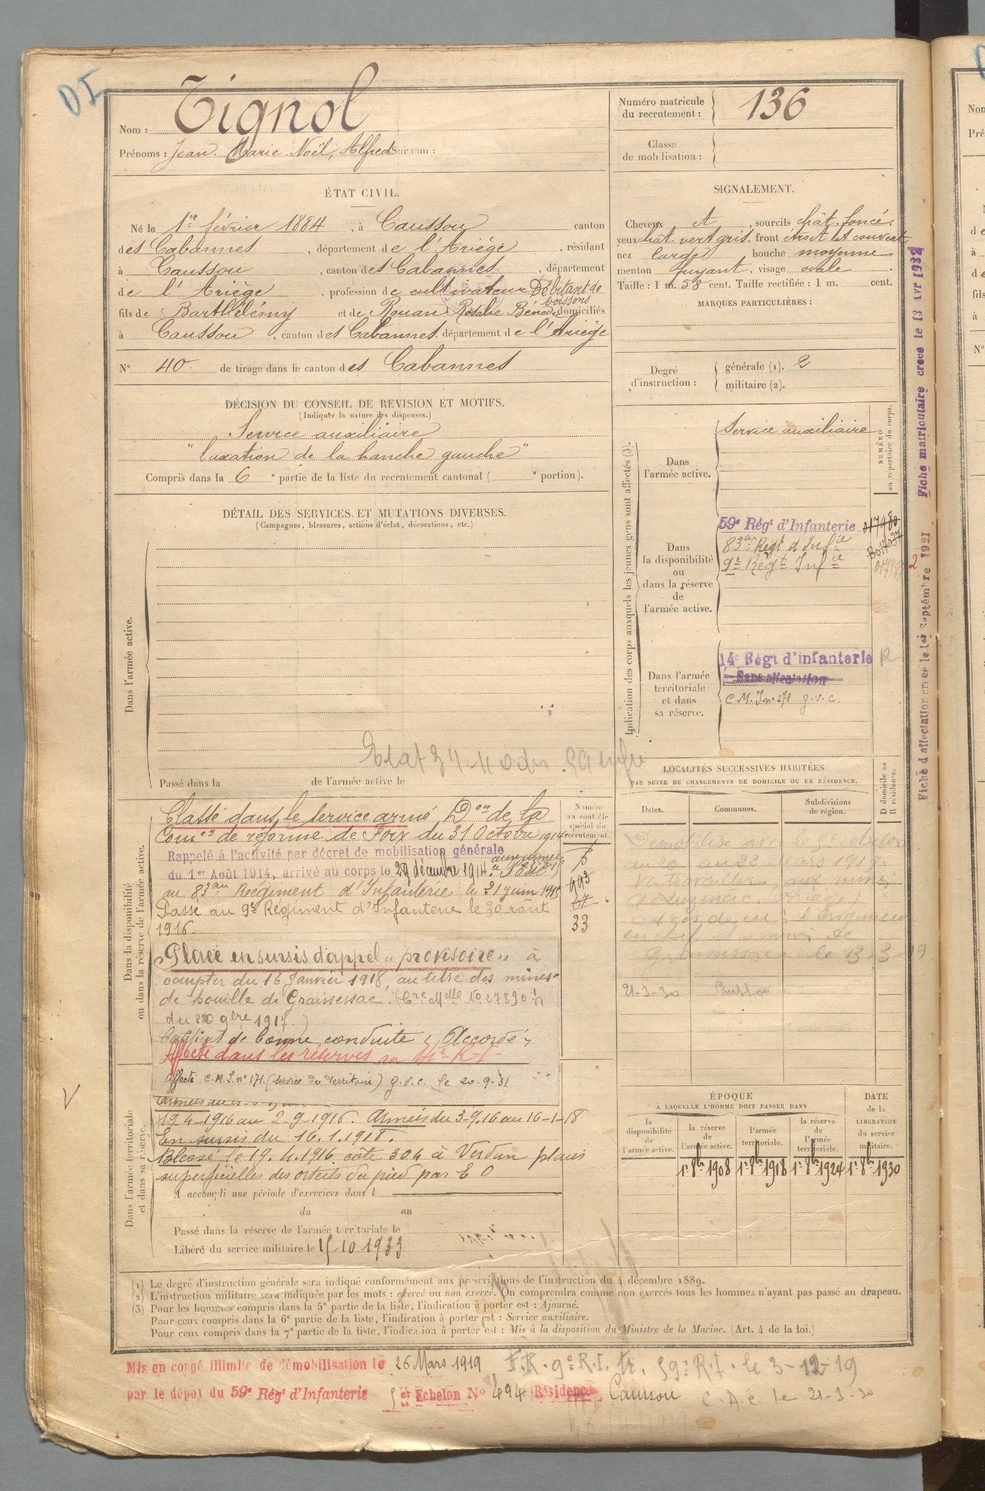 DI
Nom : Tignol
Prénoms : Jean Marie Noël, Alfred Surnom :
Numéro matricule du recrutement : 136
Classe de mobilisation :
ÉTAT CIVIL.
Né le 1er février 1884, à Caussou canton
des Cabannes, département de l'Ariège, résidant
à Caussou, canton des Cabannes, département
de l'Ariège, profession de cultivateur Débitant de boissons
fils de Barthélémy et de Rouan Rosalie Béné domiciliés
à Caussou, canton des Cabannes, département de l'Ariège
N° 40 de tirage dans le canton des Cabannes
DÉCISION DU CONSEIL DE REVISION ET MOTIFS.
(Indiquer la nature des dispenses.)
Service auxiliaire
"luxation de la hanche gauche"
Compris dans la 6e partie de la liste du recrutement cantonal ( e portion).
SIGNALEMENT.
Cheveux et, sourcils chât. foncé
yeux chât. vert gris, front étroit et couvert
nez large, bouche moyenne
menton fuyant, visage ovale
Taille : 1 m. 58 cent. Taille rectifiée : 1 m. cent.
MARQUES PARTICULIÈRES :
Degré d'instruction : générale (1). 2
militaire (2).
DÉTAIL DES SERVICES ET MUTATIONS DIVERSES.
(Campagnes, blessures, actions d'éclat, décorations, etc.)
Dans l'armée active.
Passé dans la de l'armée active le
Indication des corps auxquels les jeunes gens sont affectés (3).
NUMÉRO au répertoire du corps.
Dans l'armée active.
Service auxiliaire
Dans la disponibilité ou dans la réserve de l'armée active.
59e Régt d'Infanterie
83ème Régt d'Infie
9e Régt Infie
Dans l'armée territoriale et dans sa réserve.
14e Régt d'infanterie R
Sans affectation
C.M.I n° 171 g.v.c.
Fiche d'affectation créée le 1er Septembre 1921
Fiche matriculaire créée le 13 AVR 1932
Dans la disponibilité ou dans la réserve de l'armée active.
Classé dans le service armé, Don de la
Comon de réforme de Foix du 31 Octobre 1914
Rappelé à l'activité par décret de mobilisation générale
du 1er Août 1914, arrivé au corps le 29 décembre 1914 Passé
au 83ème Régiment d'Infanterie le 21 juin 1915
Passé au 9e Régiment d'Infanterie le 30 août
1916
33
Placé en sursis d'appel "provisoire" à
compter du 16 janvier 1918, au titre des mines
de houille de Graissessac.
du 20 9bre 1917)
Certificat de bonne conduite "Accordé"
Affecté dans les réserves au 14e R.I.
Affecté C.M.I. n° 171 (service du territoire) g.v.c. le 20-9-31
Dans l'armée territoriale et dans sa réserve.
19-4-1916 au 2-9-1916. Armées du 3-9-16 au 16-1-18
En sursis du 16.1.1918.
Blessé le 19.4.1916 cote 304 à Verdun plaies
superficielles des orteils du pied par E O
A accompli une période d'exercices dans l
du au
Passé dans la réserve de l'armée territoriale le
Libéré du service militaire le 15-10-1933
LOCALITÉS SUCCESSIVES HABITÉES
PAR SUITE DE CHANGEMENTS DE DOMICILE OU DE RÉSIDENCE.
Dates. Communes. Subdivisions de région. D domicile ou R résidence.
21-3-30 Caussou
ÉPOQUE
À LAQUELLE L'HOMME DOIT PASSER DANS
DATE de la LIBÉRATION du service militaire.
la disponibilité de l'armée active.
la réserve de l'armée active.
l'armée territoriale.
la réserve de l'armée territoriale.
1er 8bre 1908 1er 8bre 1918 1er 8bre 1924 1er 8bre 1930
(1) Le degré d'instruction générale sera indiqué conformément aux prescriptions de l'instruction du 4 décembre 1889.
(2) L'instruction militaire sera indiquée par les mots : exercé ou non exercé. On comprendra comme non exercés tous les hommes n'ayant pas passé au drapeau.
(3) Pour les hommes compris dans la 5e partie de la liste, l'indication à porter est : Ajourné.
Pour ceux compris dans la 6e partie de la liste, l'indication à porter est : Service auxiliaire.
Pour ceux compris dans la 7e partie de la liste, l'indication à porter est : Mis à la disposition du Ministre de la Marine. (Art. 4 de la loi.)
Mis en congé illimité de démobilisation le 26 Mars 1919 F.R. 9e R.I. tr. 59e R.I. le 3-12-19
par le dépôt du 59e Régt d'Infanterie 5er Echelon N° 494 Résidence Caussou C.A.C. le 21-3-30